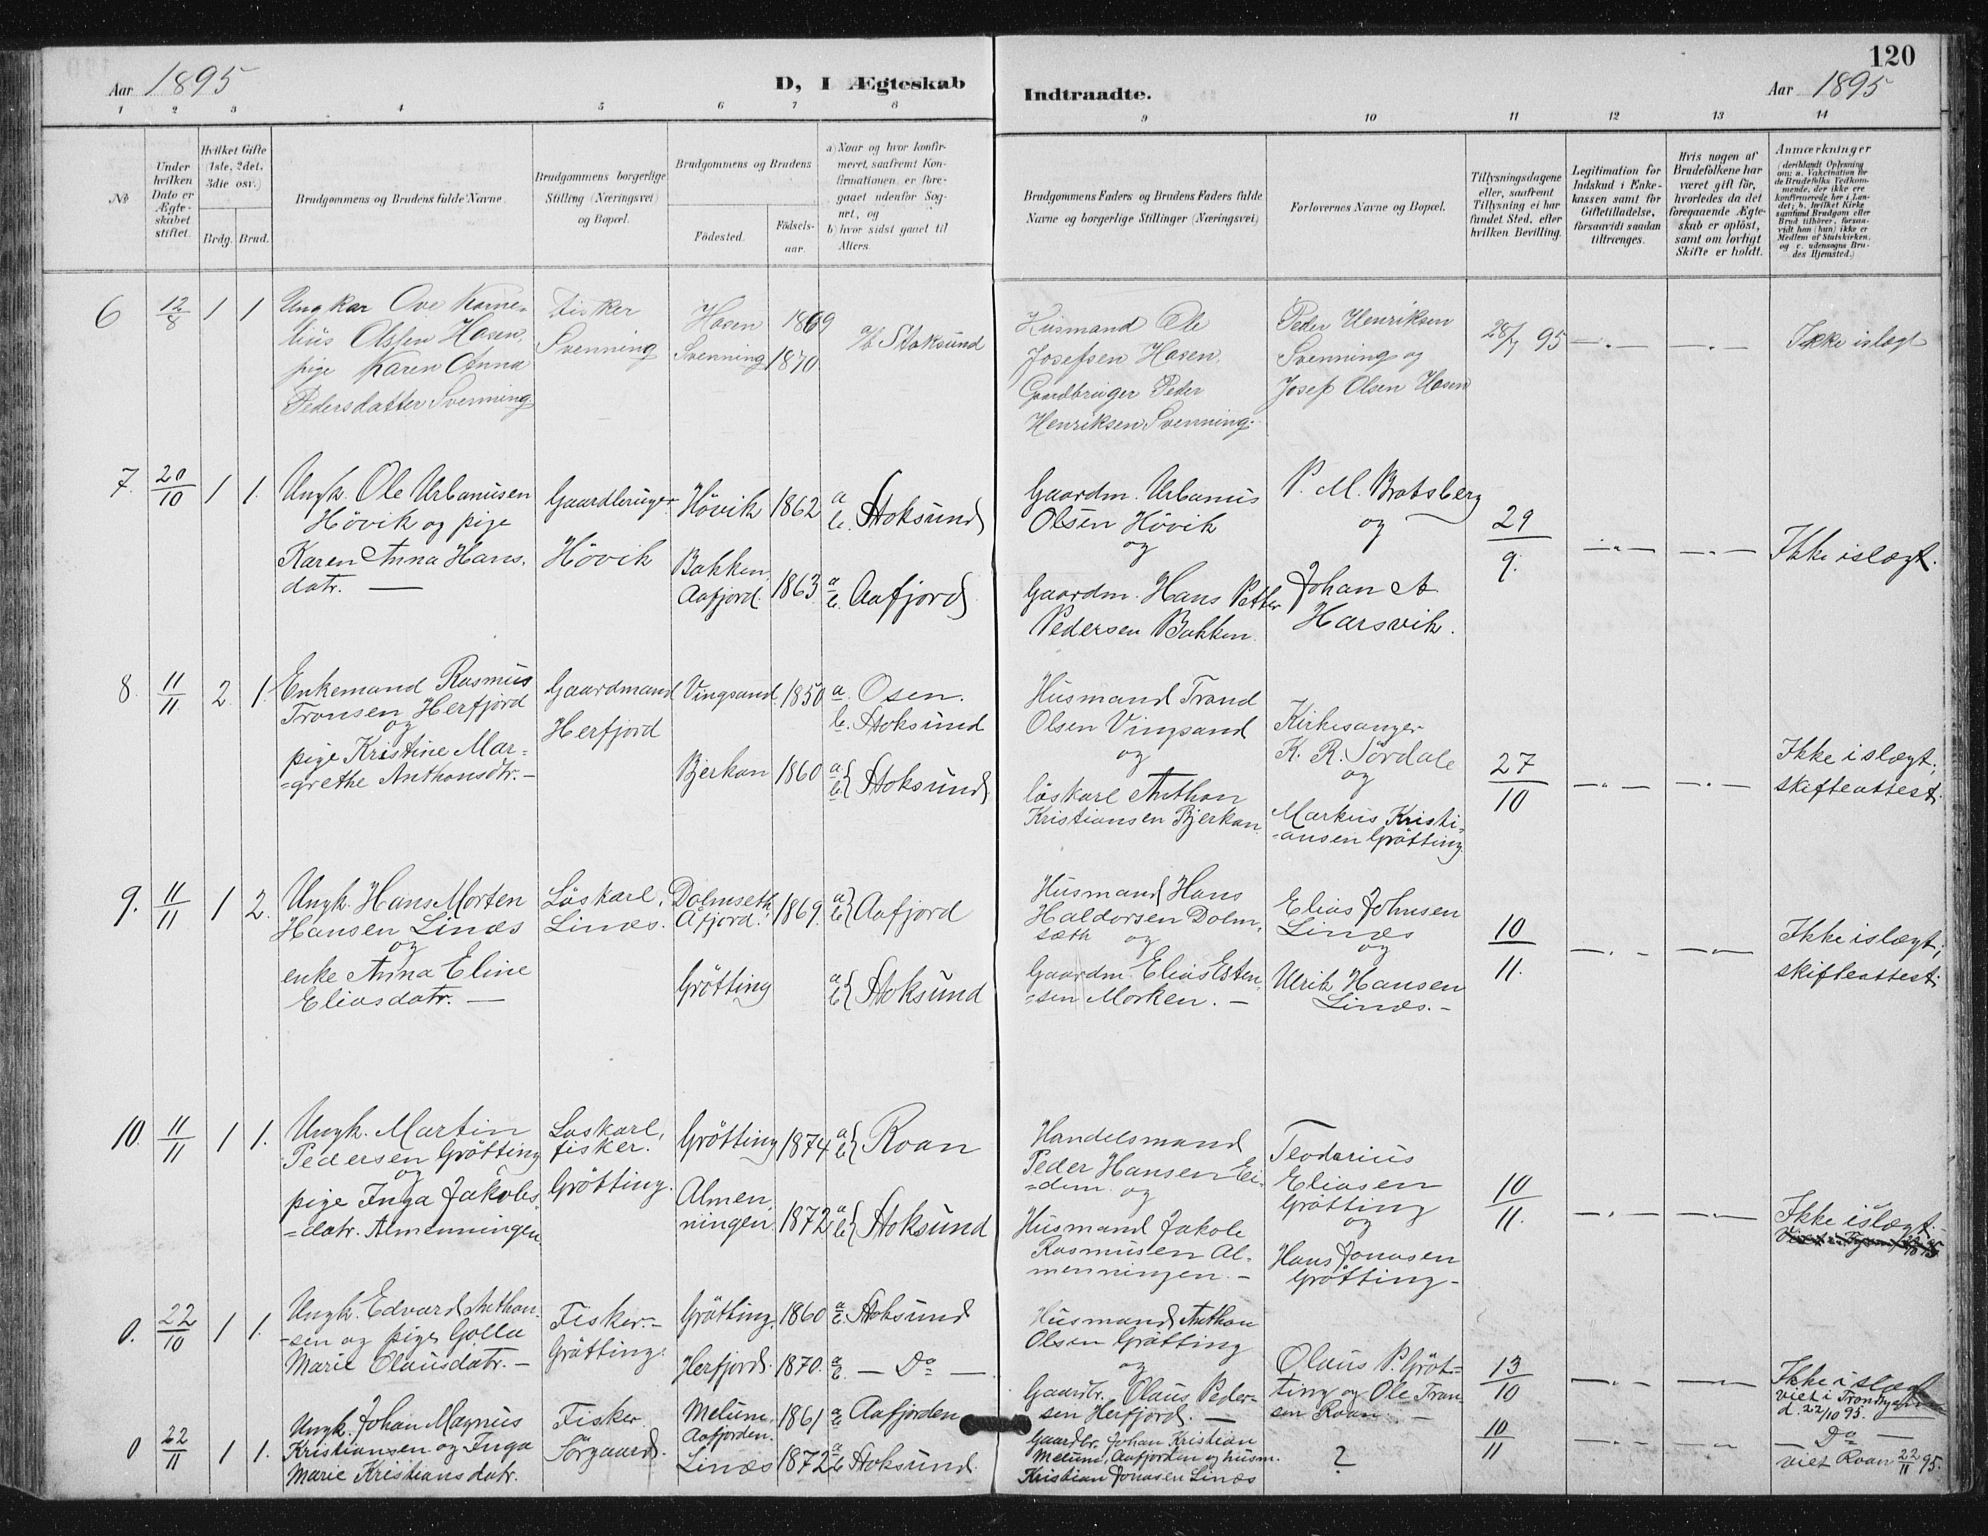 120
Aar 1895
D, I Ægteskab
Indtraadte.
Aar 1895
1 2 3 4 5 6 7 8 9 10 11 12 13 14
No
Under hvilken Dato er Ægteskabet stiftet.
Hvilket Gifte (1ste, 2det, 3die osv.)
Brdg. Brud.
Brudgommens og Brudens fulde Navne.
Brudgommens borgerlige Stilling (Næringsvei) og Bopæl.
Brudgommens og Brudens
Fødested.
Fødselsaar.
a) Naar og hvor konfirmeret, saafremt Konfirmationen er foregaaet udenfor Sognet, og
b) hvor sidst gaaet til Alters.
Brudgommens Faders og Brudens Faders fulde Navne og borgerlige Stillinger (Næringsvei)
Forlovernes Navne og Bopæl.
Tillysningsdagene eller, saafremt Tillysning ei har fundet Sted, efter hvilken Bevilling.
Legitimation for Indskud i Enkekassen samt for Giftetilladelse, forsaavidt saadan tiltrænges.
Hvis nogen af Brudefolkene har været gift før, hvorledes da det foregaaende Ægteskab er opløst, samt om lovligt Skifte er holdt.
Anmærkninger
(deriblandt Oplysning om: a. Vakcination for de Brudefolks Vedkommende, der ikke ere konfirmerede her i Landet; b. hvilket Kirkesamfund Brudgom eller Brud tilhører, forsaavidt han (hun) ikke er Medlem af Statskirken, og c. udensogns Brudes Hjemsted.)
6 12/8 1 1
Ungkar Ove Korne-
lius Olsen Hosen,
pige Karen Anna
Pedersdatter Svenning
Fisker
Svenning
Hosen 1869
Svenning 1870
Stoksund
Husmand Ole
Josefsen Hosen
Gaardbruger Peder
Henriksen Svenning.
Peder Henriksen
Svenning og
Josef Olsen Hosen
28/7 95
Ikke islegt
7. 20/10 1 1.
Ungk. Ole Urbanusen
Hövik og pige
Karen Anna Hans.
datr. —
Gaardbruger
Hövik
Hövik 1862
Bakken
Aafjord. 1863
a b. Stoksund
a b. Aafjord
Gaardm. Urbanus
Olsen Hövik
og
Gaardm. Hans Petter
Pedersen Bakken.
P. M. Bratsberg
og
Johan A.
Harsvik.
29/9.
Ikke islægt.
8. 11/11 2. 1.
Enkemand Rasmus
Tronsen Herfjord
og
pige Kristine Mar=
=grethe Anthonsdtr. -
Gaardmand
Herfjord
Vingsand. 1850
Bjerkan 1860
a. Osen.
b. Stoksund
a b { Stoksund
Husmand Trand
Olsen Vingsand
og
löskarl Anthon
Kristiansen Bjerkan
Kirkesanger
K. R. Sördale
og
Markus Kristi-
=ansen Grötting
27/10
Ikke islægt;
skifteattest.
9. 11/11 1 2.
Ungk. Hans Morten
Hansen Linæs
og
enke Anna Eline
Eliasdatr. —
Löskarl,
Linæs.
Dolmseth
Åfjord. 1869.
Grötting
a b } Aafjord
a b { Stoksund
Husmand Hans
Haldorsen Dolm,
sæth og
Gaardm. Elias Esten-
=sen Morken. -
Elias Johnsen
Linæs
og
Ulrik Hansen
Linæs. -
10/11.
Ikke islægt;
skifteattest.
10. 11/11 1 1.
Ungk. Martin
Pedersen Grötting
og
pige Inga Jakobs-
=datr. Almenningen.
Löskarl,
fisker.
Grötting.
Grötting 1874
Almen,
ningen 1872
a b { Roan
a b { Stoksund
Handelsmand
Peder Hansen Ei-
=dem og
Husmand Jakob
Rasmusen Al-
menningen. -
Teodorius
Eliasen
Grötting
og
Hans Jonasen
Grötting -
10/11.
Ikke islægt.
0. 22/10 1 1.
Ungk. Edvard Anthon-
-sen og pige Golla
Marie Olausdatr. -
Fisker. -
Grötting.
Grötting. 1860
Herfjord. 1870.
a b Stoksund
a b. — Do —
Husmand Anthon
Olsen Grötting
og
Gaardbr. Olaus Peder-
sen Herfjord. —
Olaus P. Gröt=
ting og Ole Tran-
sen Roan. -
13/10
Ikke islægt
viet i Trondhjem
d. 22/10 95.
0 22/11 1 1.
Ungk. Johan Magnus
Kristiansen og Inga
Marie Kristiansdatr.
Fisker
Sörgaard.
Melum,
Aafjorden. 1861
Linæs 1872
a b Aafjorden
a b Stoksund
Gaardbr. Johan Kristian
Melum, Aafjorden og husm.
Kristian Jonasen Linæs
?
10/11
— Do —
viet Roan 22/11 95.